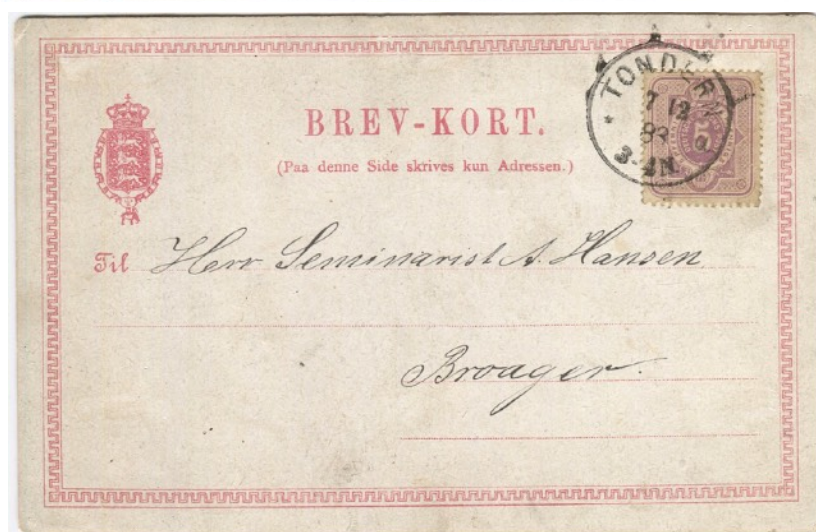 BREV-KORT.
(Paa denne Side skrives kun Adressen.)
* TONDERN
7 12
3-4N.
5
Til Herr Seminarist A. Hansen
Broager.